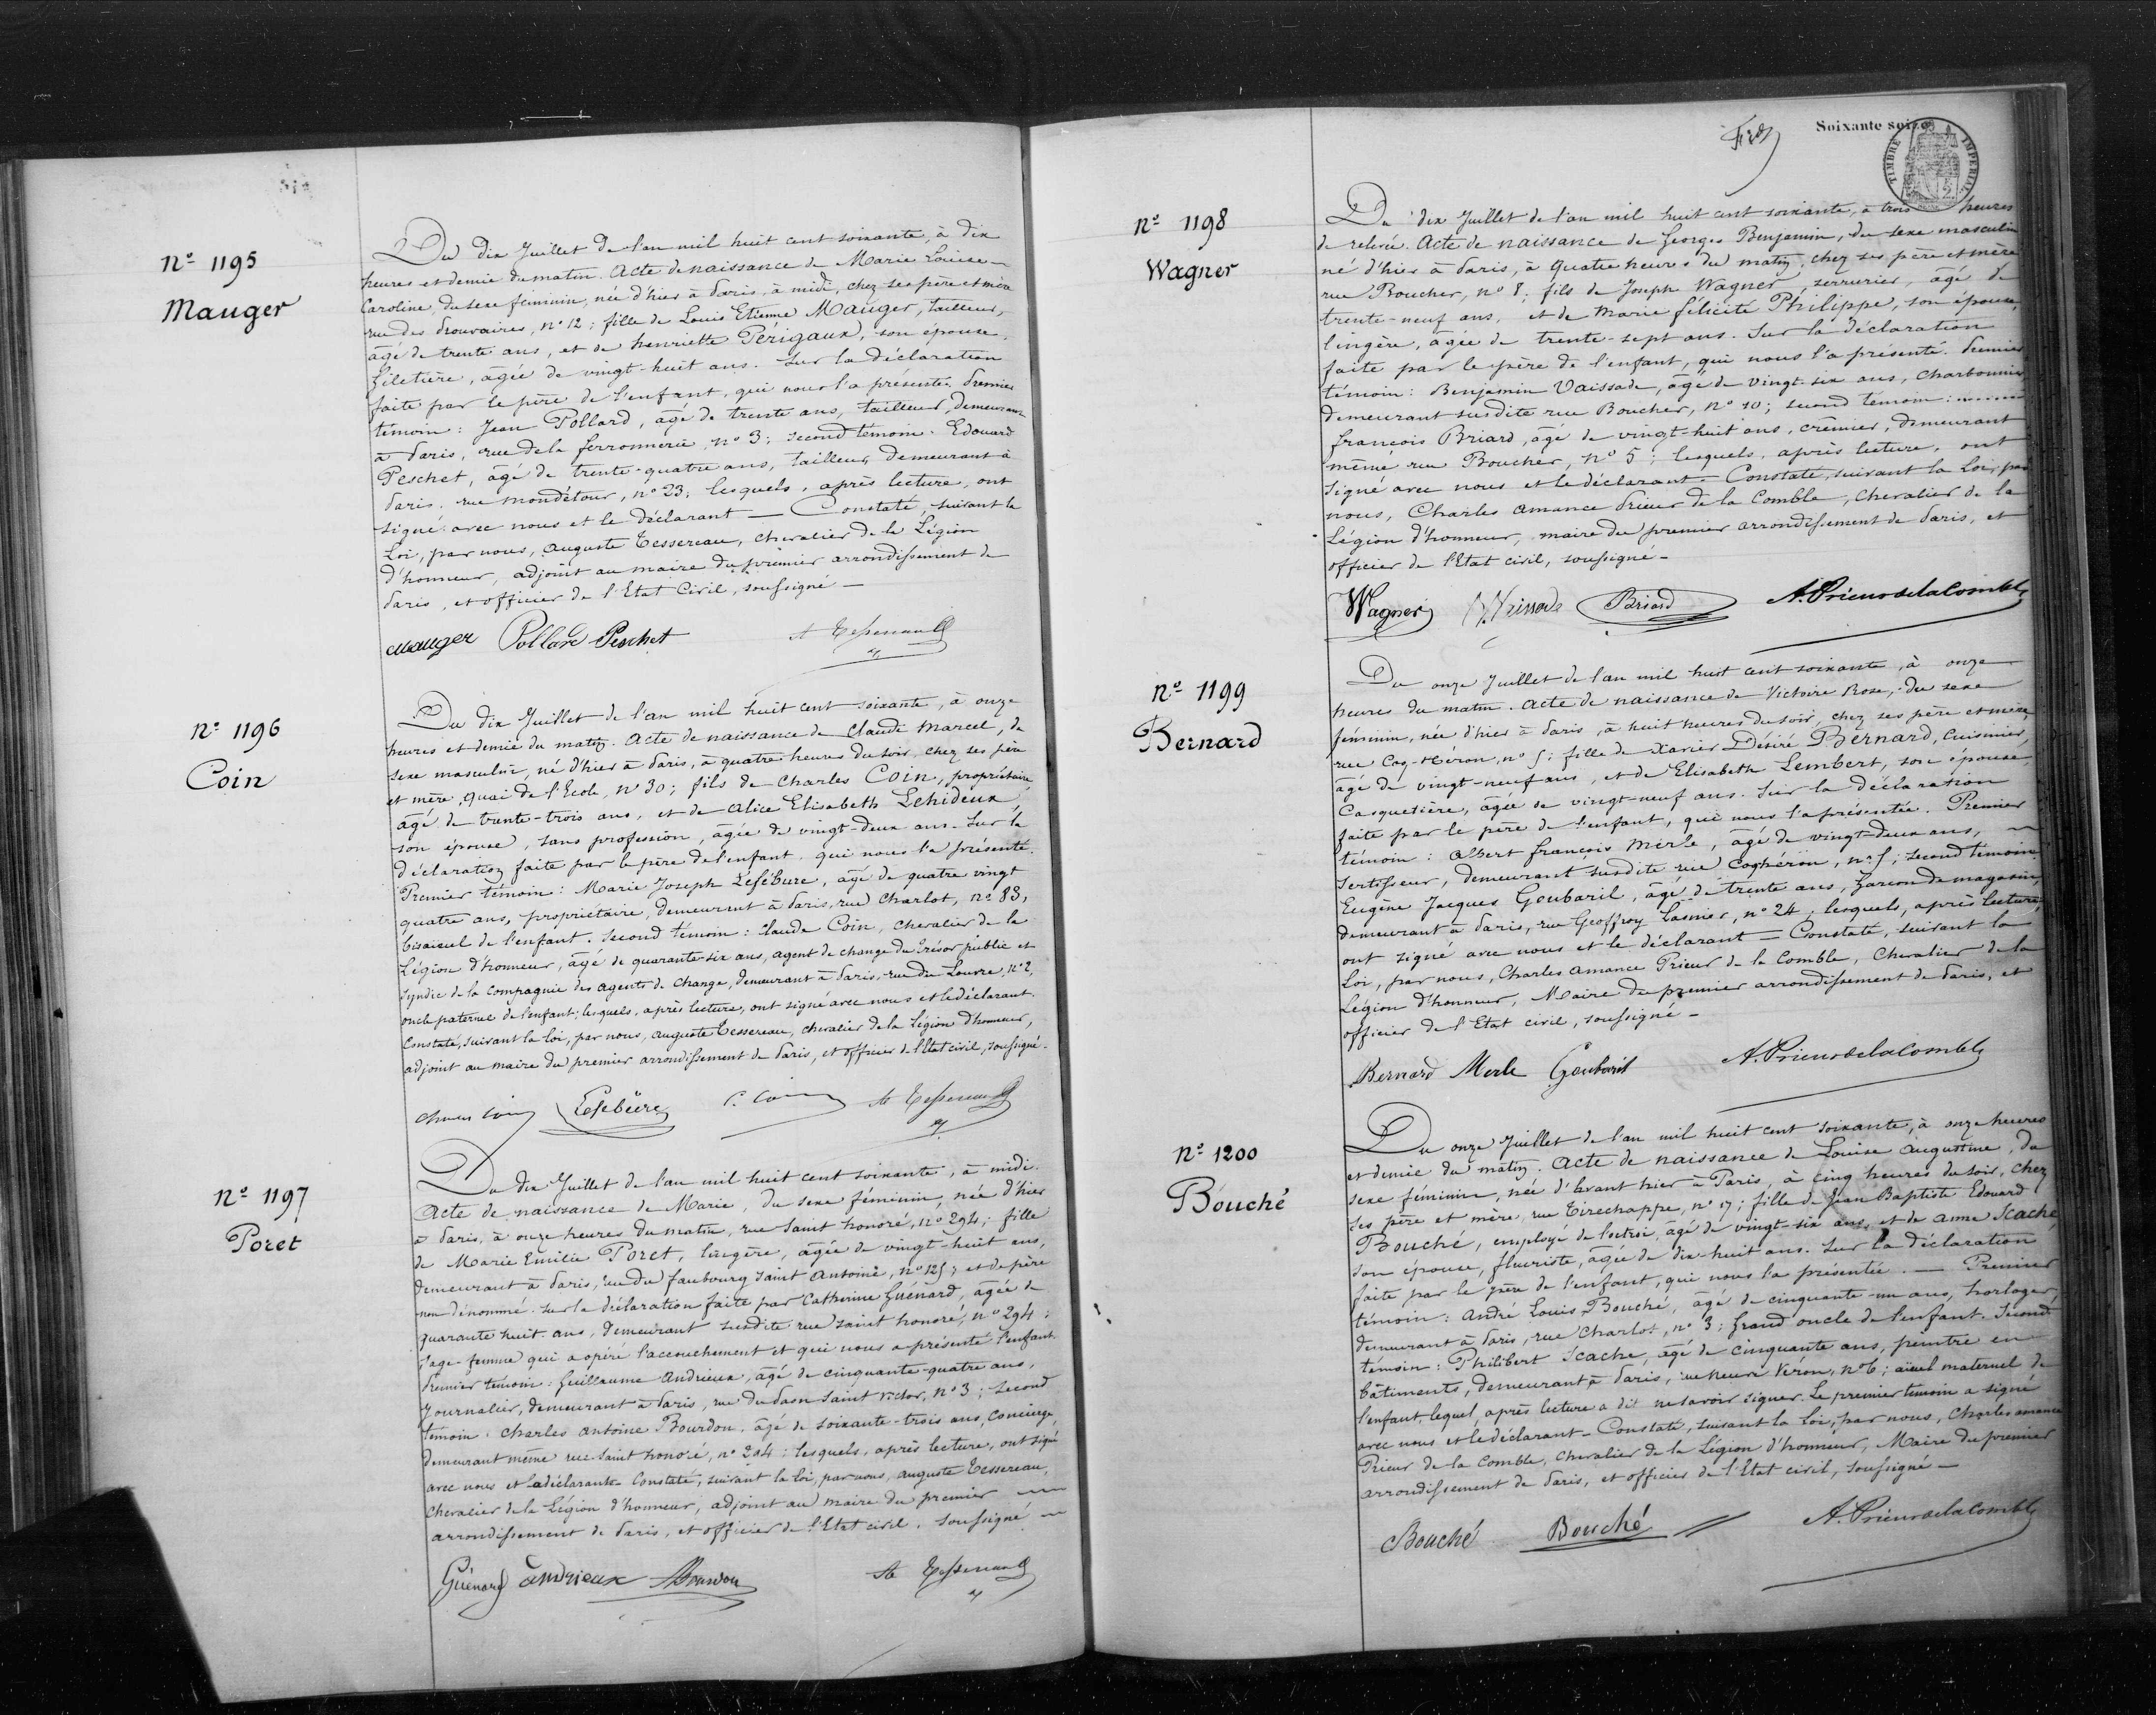 nº 1195
Mauger
Du dix Juillet de l'an mil huit cent soixante, à dix
heures et demie du matin. Acte de naissance de Marie Louise
Caroline, du sexe féminin, née d'hier à Paris, à midi, chez ses père et mère
rue des Prouvaires, nº 12; fille de Louis Etienne Mauger, tailleur,
âgé de trente ans, et de henriette Périgaux, son épouse,
Giletière, âgée de vingt-huit ans. Sur la déclaration
faite par le père de l'enfant, qui nous l'a présentée. Premier
témoin: Jean Pollard, âgé de trente ans, tailleur, demeurant
à Paris, rue de la ferronnerie nº 3; second témoin: Edouard
Peschet, âgé de trente-quatre ans, tailleur, demeurant à
Paris, rue mondétour, nº 23; lesquels, après lecture, ont
signé avec nous et le déclarant — Constaté, suivant la
Loi, par nous, Auguste Tessereau, chevalier de la Légion
d'honneur, adjoint au maire du premier arrondissement de
Paris, et officier de l'Etat Civil, soussigné —
Mauger Pollard Peschet At Tessereau
nº 1196
Coin
Du dix Juillet de l'an mil huit cent soixante, à onze
heures et demie du matin. Acte de naissance de Claude Marcel, de
sexe masculin, né d'hier à Paris, à quatre heures du soir, chez ses père
et mère, quai de l'Ecole, nº 30; fils de Charles Coin, propriétaire
âgé de trente-trois ans, et de Alice Elisabeth Lehideux,
son épouse, sans profession, âgée de vingt-deux ans. Sur la
déclaration faite par le père de l'enfant, qui nous l'a présenté.
Premier témoin: Marie Joseph Lefébure, âgé de quatre vingt
quatre ans, propriétaire, demeurant à Paris, rue Charlot, nº 83,
bisaieul de l'enfant. Second témoin: Claude Coin, chevalier de la
Légion d'honneur, âgé de quarante-six ans, agent de change du trésor public et
syndic de la compagnie des agents de change, demeurant à Paris, rue du Louvre, nº 2,
oncle paternel de l'enfant; lesquels, après lecture, ont signé avec nous et le déclarant.
Constaté, suivant la loi, par nous, auguste Tessereau, chevalier de la Légion d'honneur,
adjoint au maire du premier arrondissement de Paris, et officier de l'Etat civil, soussigné.
Charles Coin Lefébure C. Coin At Tessereau
nº 1197
Poret
Du dix Juillet de l'an mil huit cent soixante, à midi.
Acte de naissance de Marie, du sexe féminin, née d'hier
à Paris, à onze heures du matin, rue saint honoré, nº 294; fille
de Marie Emilie Poret, lingère, âgée de vingt-huit ans,
demeurant à Paris, rue du faubourg saint antoine, nº 125; et de père
non dénommé. Sur la déclaration faite par Catherine Guénard, âgée de
quarante huit ans, demeurant susdite rue saint honoré, nº 294;
sage-femme qui a opéré l'accouchement et qui nous a présenté l'enfant
Premier témoin: Guillaume Andrieux, âgé de cinquante-quatre ans,
Journalier, demeurant à Paris, rue du Paon saint victor, nº 3; Second
témoin: Charles Antoine Bourdon, âgé de soixante-trois ans, Concierge,
demeurant même rue saint honoré, nº 294; lesquels, après lecture, ont signé
avec nous et la déclarante. Constaté, suivant la loi, par nous, Auguste Tessereau,
Chevalier de la Légion d'honneur, adjoint au maire du premier
arrondissement de Paris, et officier de l'Etat civil, soussigné
Guénard Andrieux Bourdon At Tessereau
Soixante seize
TIMBRE IMPERIAL
nº 1198
Wagner
Du dix Juillet de l'an mil huit cent soixante, à trois heures
de relevée. Acte de naissance de Georges Benjamin, du sexe masculin
né d'hier à Paris, à quatre heures du matin, chez ses père et mère
rue Boucher, nº 8; fils de Joseph Wagner, serrurier, âgé de
trente-neuf ans, et de Marie félicité Philippe, son épouse,
lingère, âgée de trente-sept ans. Sur la déclaration
faite par le père de l'enfant, qui nous l'a présenté. Premier
témoin: Benjamin Vaissade, âgé de vingt-six ans, charbonnier
demeurant susdite rue Boucher, nº 10; second témoin:
françois Briard, âgé de vingt-huit ans, crémier, demeurant
même rue Boucher, nº 5; lesquels, après lecture, ont
signé avec nous et le déclarant. Constaté, suivant la Loi, par
nous, Charles Amance Prieur de la Comble, chevalier de la
Légion d'honneur, maire du premier arrondissement de Paris, et
officier de l'Etat civil, soussigné —
Wagner Briard A. Prieur de la Comble
nº 1199
Bernard
Du onze Juillet de l'an mil huit cent soixante, à onze
heures du matin. Acte de naissance de Victoire Rose, du sexe
féminin, née d'hier à Paris, à huit heures du soir, chez ses père et mère,
rue Coq-Héron, nº 5; fille de Xavier Désiré Bernard, Cuisinier,
âgé de vingt-neuf ans, et de Elisabeth Lembert, son épouse,
Casquetière, âgée de vingt-neuf ans. Sur la déclaration
faite par le père de l'enfant, qui nous l'a présentée. Premier
témoin: Albert françois Merle, âgé de vingt-deux ans,
Sertisseur, demeurant susdite rue Coqhéron, nº 5; second témoin
Eugène Jacques Goubaril, âgé de trente ans, garçon de magasin,
demeurant à Paris, rue Geoffroy Lasnier, nº 24, lesquels, après lecture,
ont signé avec nous et le déclarant = Constaté, suivant la
Loi, par nous, Charles Amance Prieur de la Comble, Chevalier de la
Légion d'honneur, Maire du premier arrondissement de Paris, et
officier de l'Etat civil, soussigné —
Bernard Merle Goubaril A. Prieur de la Comble
nº 1200
Bouché
Du onze Juillet de l'an mil huit cent soixante, à onze heures
et demie du matin. Acte de naissance de Louise Augustine, du
sexe féminin, née d'avant hier à Paris, à cinq heures du soir, chez
ses père et mère, rue Tirechappe, nº 17; fille de Jean Baptiste Edouard
Bouché, employé de l'octroi, âgé de vingt-six ans, et de anne Scache,
son épouse, fleuriste, âgée de dix-huit ans. Sur la déclaration
faite par le père de l'enfant, qui nous l'a présentée. — Premier
témoin: André Louis Bouché, âgé de cinquante-un ans, horloger,
demeurant à Paris, rue Charlot, nº 3; grand oncle de l'enfant. Second
témoin: Philibert Scache, âgé de cinquante ans, peintre en
bâtiments, demeurant à Paris, rue neuve Véron, nº 6; aïeul maternel de
l'enfant, lequel, après lecture a dit ne savoir signer. Le premier témoin a signé
avec nous et le déclarant. Constaté, suivant la Loi, par nous, Charles amance
Prieur de la Comble, Chevalier de la Légion d'honneur, Maire du premier
arrondissement de Paris, et officier de l'Etat civil, soussigné —
Bouché Bouché A. Prieur de la Comble